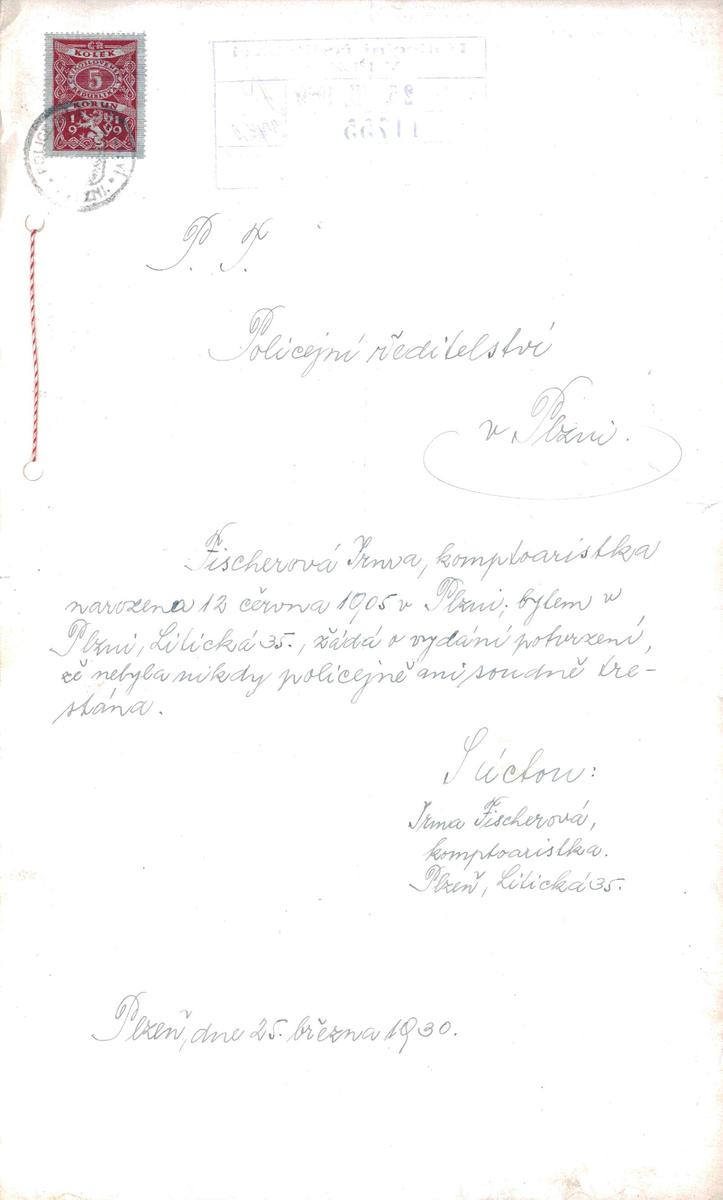 ČR
KOLEK
5
KORUN
1919
P. T.
Policejní ředitelství
v Plzni.
Fischerová Irma, komptoaristka
narozena 12 června 1905 v Plzni, bytem v
Plzni, Litická 35., žádá o vydání potvrzení,
že nebyla nikdy policejně ani soudně tre-
stána.
S úctou:
Irma Fischerová,
komptoaristka.
Plzeň, Litická 35.
Plzeň, dne 25. března 1930.